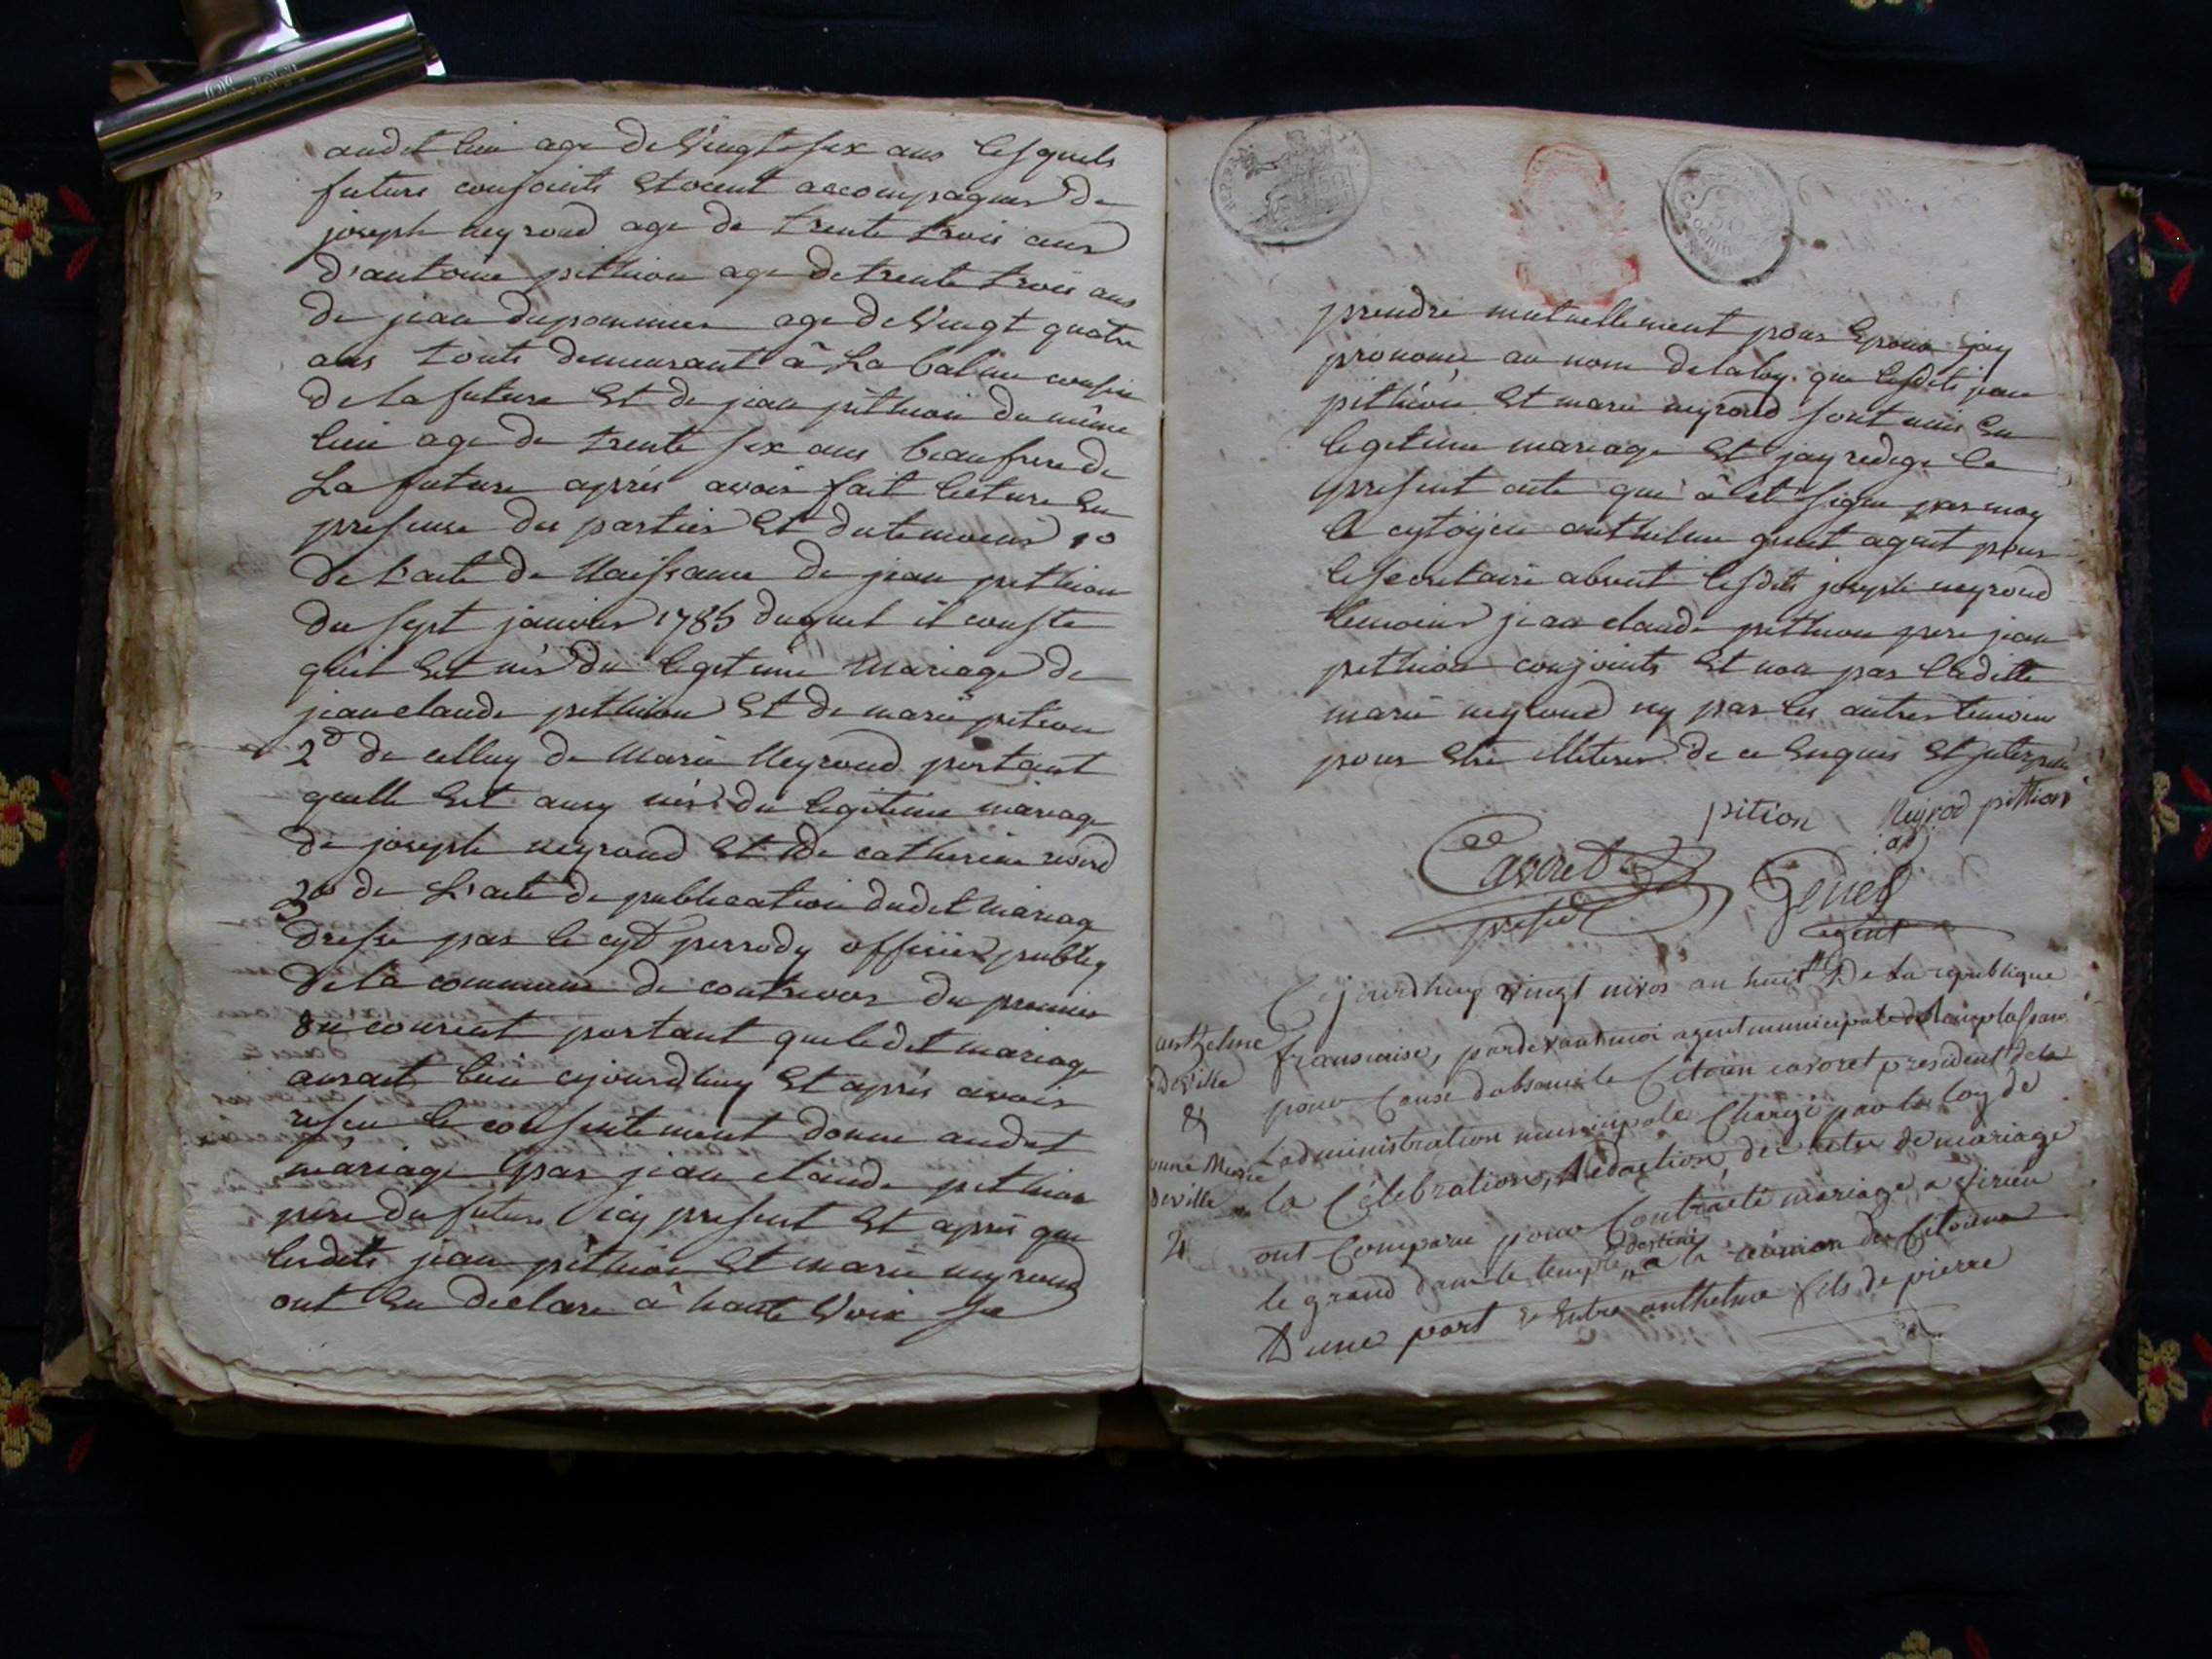 audit lieu age de Vingt six ans lesquels
futurs conjoints etoient accompagnes de
joseph neyroud age de trente trois ans
d'antoine pithion age de trente trois ans
de jean dupommier age de Vingt quatre
ans touts demeurant à La balme cousin
de la future et de jean pithion du même
lieu age de trente six ans beaufrere de
La future aprés avoir fait lecture en
presence des parties et du temoins 1o
de l'acte de Naissance de jean pethion
du sept janvier 1785 duquel il conste
qu'il est nés du legetime Mariage de
jean claude pethion et de marie pition
2o de celluy de Marie Neyroud portant
quelle est aussy nés du legitime mariage
de joseph neyroud et de catherine
3o de L'acte de publication dudet Mariag
dresse par le cyt perrody officier publiq
de la commune de contrevos du premier
du courent portant que ledet mariage
auroit lieu cejourdhuy et aprés avoir
reseu le consentement donné audet
mariage par jean claude pethion
pere du futur icy present et apres que
lesdits jean pithion et marie neyroud
ont eu declare à haute Voix se
prendre mutuellement pour Epoux jay
prononcé au nom de la loy que lesdits jean
pithion et marie neyroud sont unis en
legetime mariage et jay redige le
present acte qui à et signe par moy
le cytoyen anthelme genet agent pour
le secretaire absent lesdits joseph neyroud
temoins jean claude pethion pere jean
pethion conjoints et non par ladette
marie neyroud ny par les autres temoin
pour etre illeteres de ce enquis et
pition Neyrod pittion
Cavoret
Genet
agent
Cejourdhuy vingt nivos an huit de la republique
fransaise, pardevant moi agent municipale
pour Cause dabsence le Citoien cavoret president de la
Ladministration municipale Chargé par la loy de
la Célébration, Rédaction des actes de mariage
ont Comparu pour Contracté mariage a Virieu
le grand dans le temple destiné a la réunion des Citoiens
D une part & Entre anthelme fils de pierre
anthelme
deville
&
anne Marie
deville